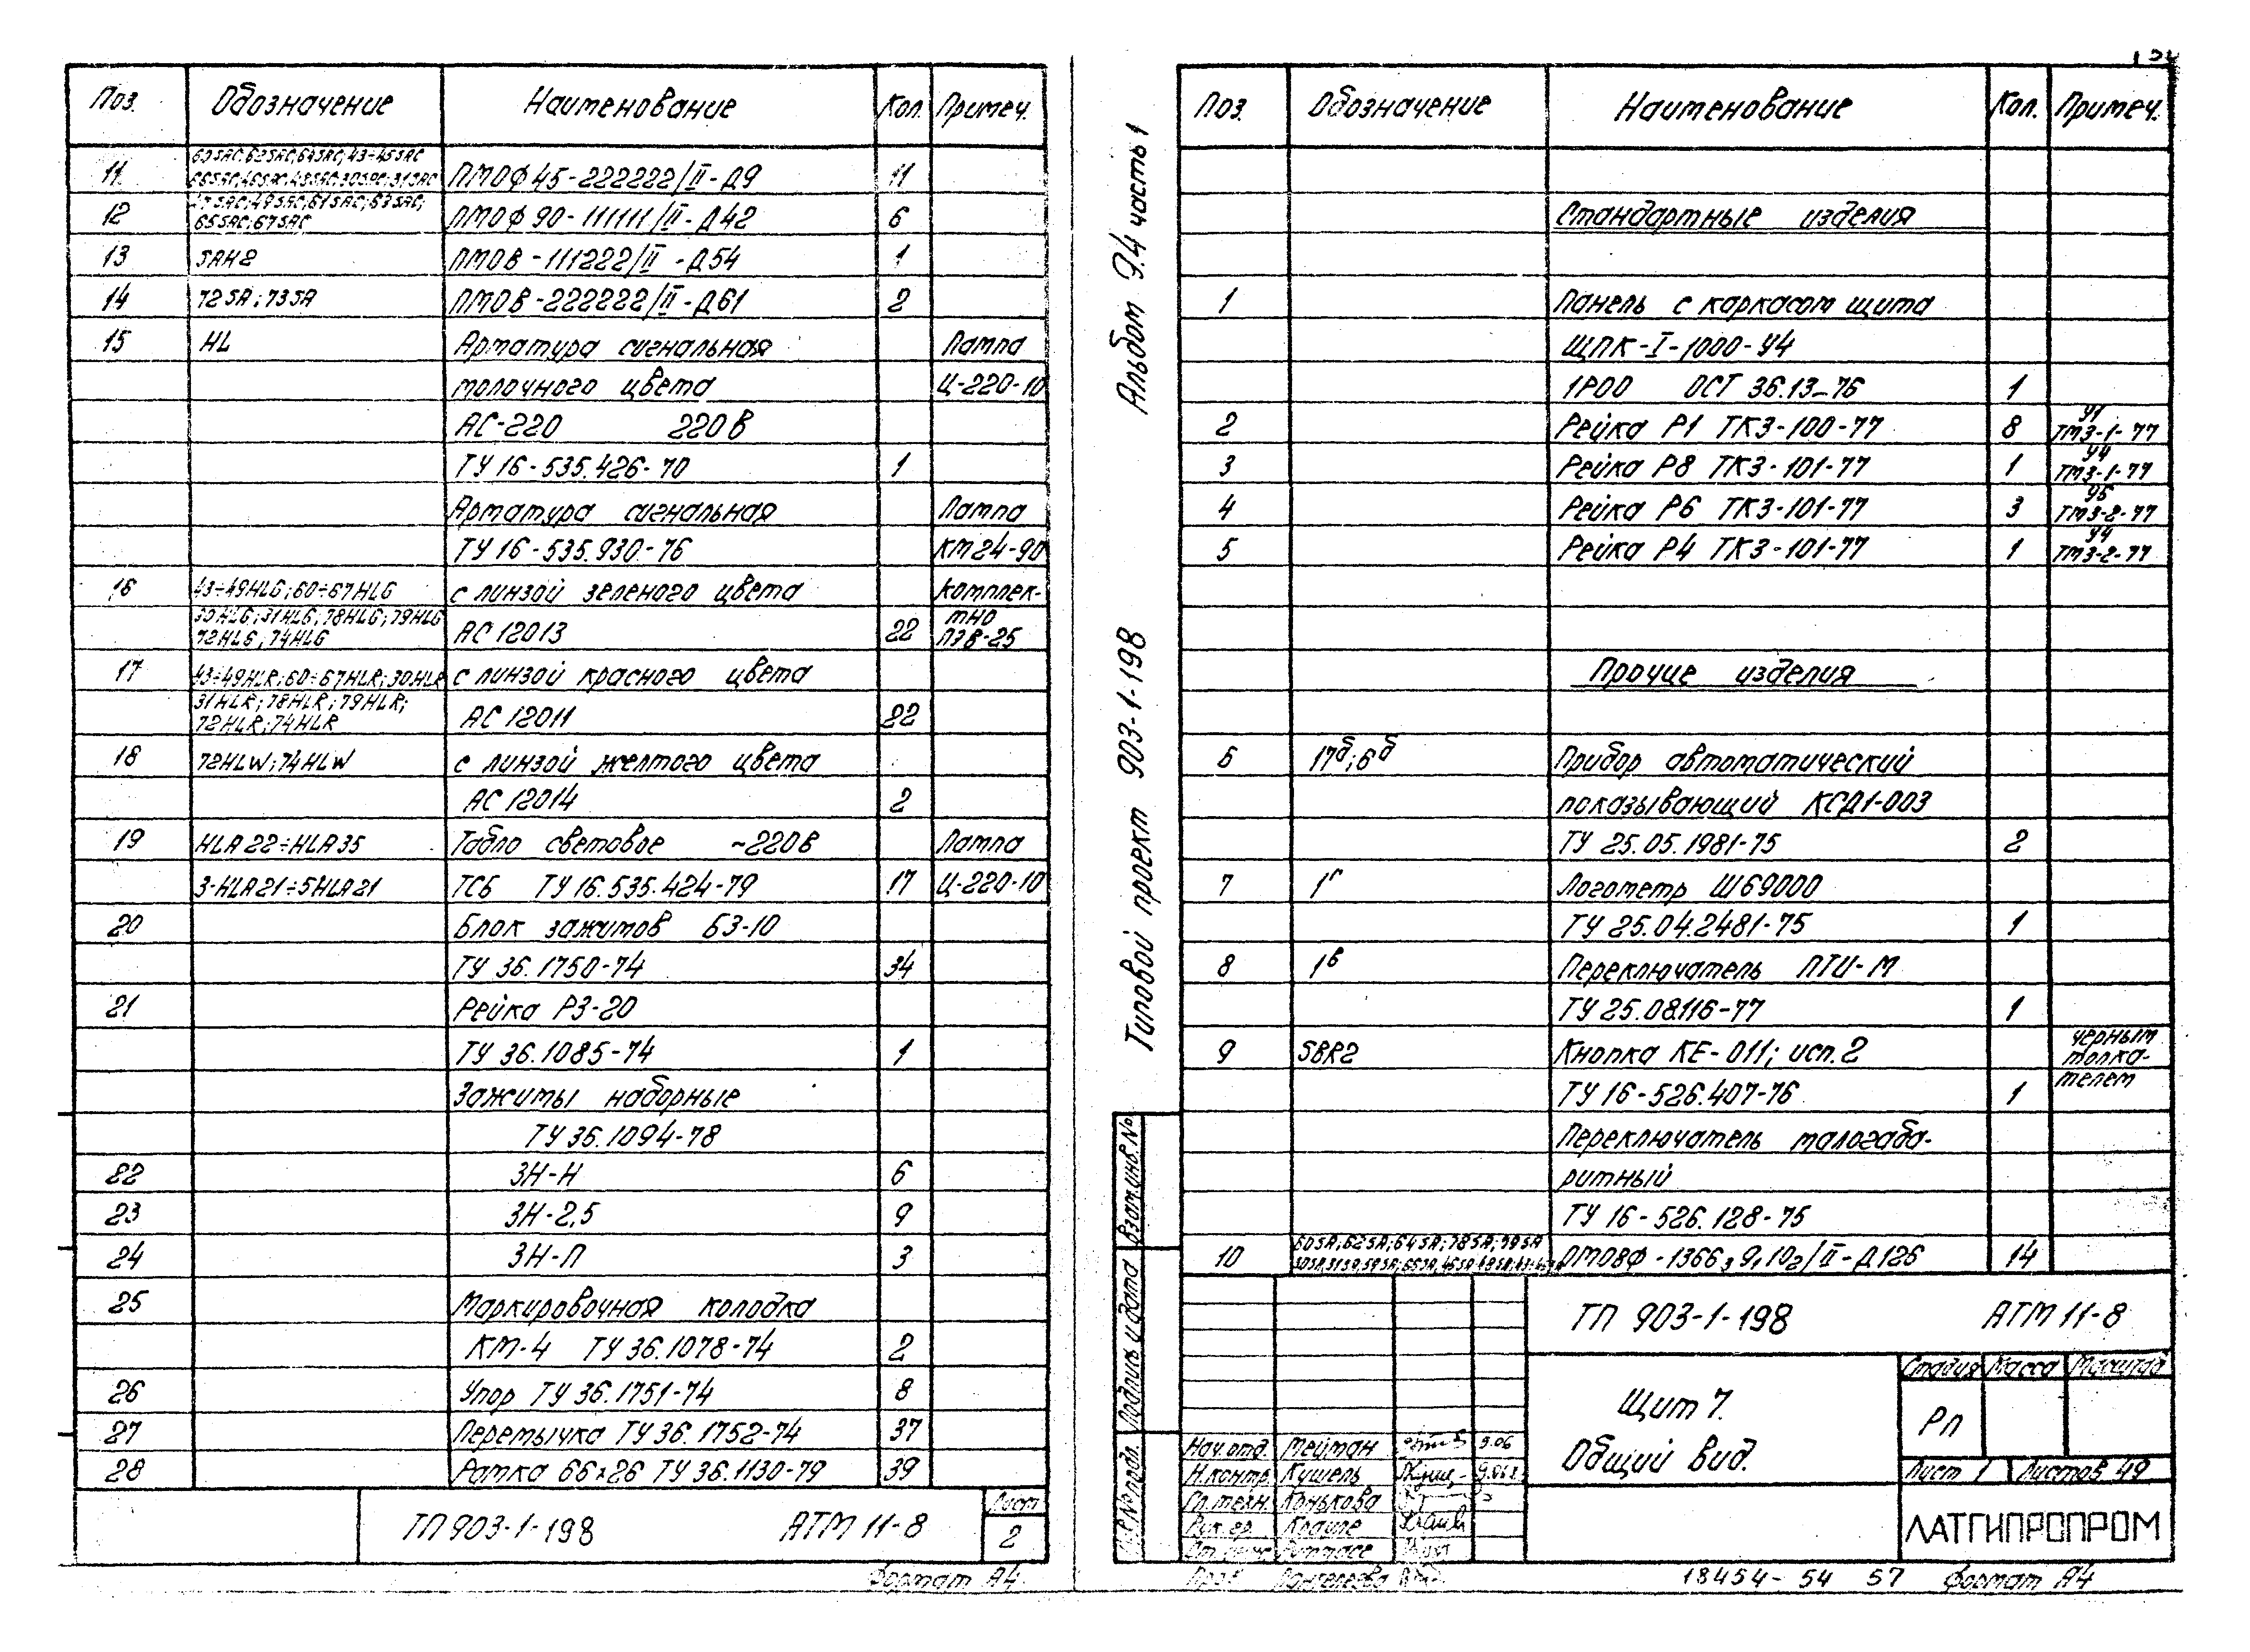 Поз. Обозначение Наименование Кол. Примеч.
11 ПМОФ45-222222/II-Д9 11
12 65SAC;67SAC ПМОФ90-111111/II-Д42 6
13 SAH2 ПМОВ-111222/II-Д54 1
14 72SA;73SA ПМОВ-222222/II-Д61 2
15 HL Арматура сигнальная Лампа
молочного цвета Ц-220-10
АС-220 220В
ТУ 16-535.426-70 1
Арматура сигнальная Лампа
ТУ 16-535.930-76 КМ24-90
16 43÷49HLG;60÷67HLG с линзой зеленого цвета комплек-
30HLG;31HLG;78HLG;79HLG тно
72HLG;74HLG АС12013 22 ПЭВ-25
17 43÷49HLR;60÷67HLR;30HLR с линзой красного цвета
31HLR;78HLR;79HLR;
72HLR;74HLR АС12011 22
18 72HLW;74HLW с линзой желтого цвета
АС12014 2
19 HLA22÷HLA35 Табло световое ~220В Лампа
3-HLA21÷5HLA21 ТСБ ТУ 16.535.424-79 17 Ц-220-10
20 Блок зажимов БЗ-10
ТУ 36.1750-74 34
21 Рейка РЗ-20
ТУ 36.1085-74 1
Зажимы наборные
ТУ 36.1094-78
22 ЗН-Н 6
23 ЗН-2,5 9
24 ЗН-П 3
25 Маркировочная колодка
КМ-4 ТУ 36.1078-74 2
26 Упор ТУ 36.1751-74 8
27 Перемычка ТУ 36.1752-74 37
28 Рамка 66x26 ТУ 36.1130-79 39
ТП 903-1-198 АТМ 11-8 Лист 2
Формат А4
Альбом 9.4 часть 1
Типовой проект 903-1-198
Взам.инв.№
Подпись и дата
Поз. Обозначение Наименование Кол. Примеч.
Стандартные изделия
1 Панель с каркасом щита
ЩПК-I-1000-У4
IР00 ОСТ 36.13-76 1
2 Рейка Р1 ТК3-100-77 8 У1 ТМ3-1-77
3 Рейка Р8 ТК3-101-77 1 У4 ТМ3-1-77
4 Рейка Р6 ТК3-101-77 3 У5 ТМ3-2-77
5 Рейка Р4 ТК3-101-77 1 У4 ТМ3-2-77
Прочие изделия
6 17б;6б Прибор автоматический
показывающий КСД1-003
ТУ 25.05.1981-75 2
7 1г Логометр Ш69000
ТУ 25.04.2481-75 1
8 1в Переключатель ПТИ-М
ТУ 25.08116-77 1
9 SBR2 Кнопка КЕ-011; исп.2 черным
толка-
ТУ 16-526.407-76 1 телем
Переключатель малогаба-
ритный
ТУ 16-526.128-75
10 60SA;62SA;64SA;78SA;79SA ПМОВФ-1366 /II-Д126 14
ТП 903-1-198 АТМ 11-8
Щит 7.
Общий вид.
Стадия Масса Масштаб
РП
Лист 1 Листов 49
ЛАТГИПРОПРОМ
Нач.отд. Мейман 9.06
Н.контр. Кушель
Гл.техн. Конькова
Рук.гр. Крауле
18454-54 57 Формат А4